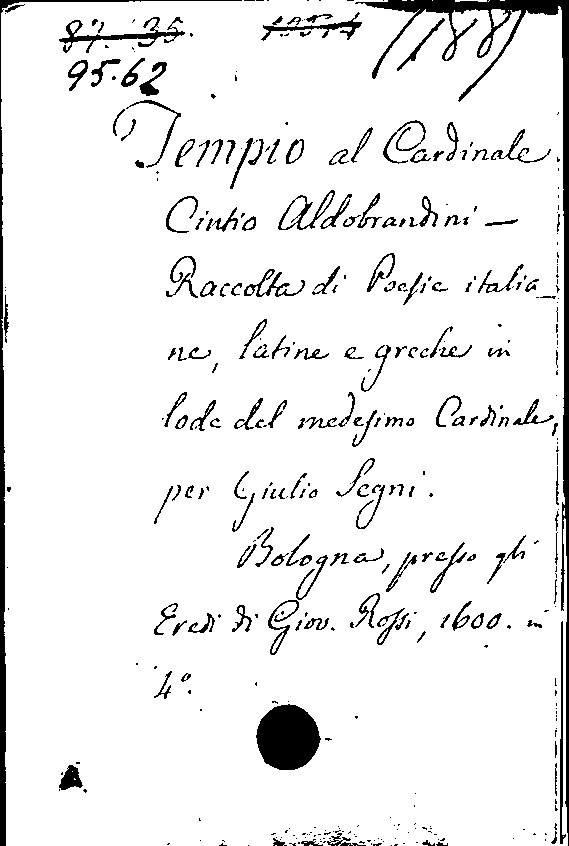 87. 35.
95.62
(188)
Tempio al Cardinale
Cintio Aldobrandini —
Raccolta di Poesie italia_
ne, latine e greche in
lode del medesimo Cardinale,
per Giulio Segni.
Bologna, presso gli
Eredi di Giov. Rossi, 1600. in
4°.